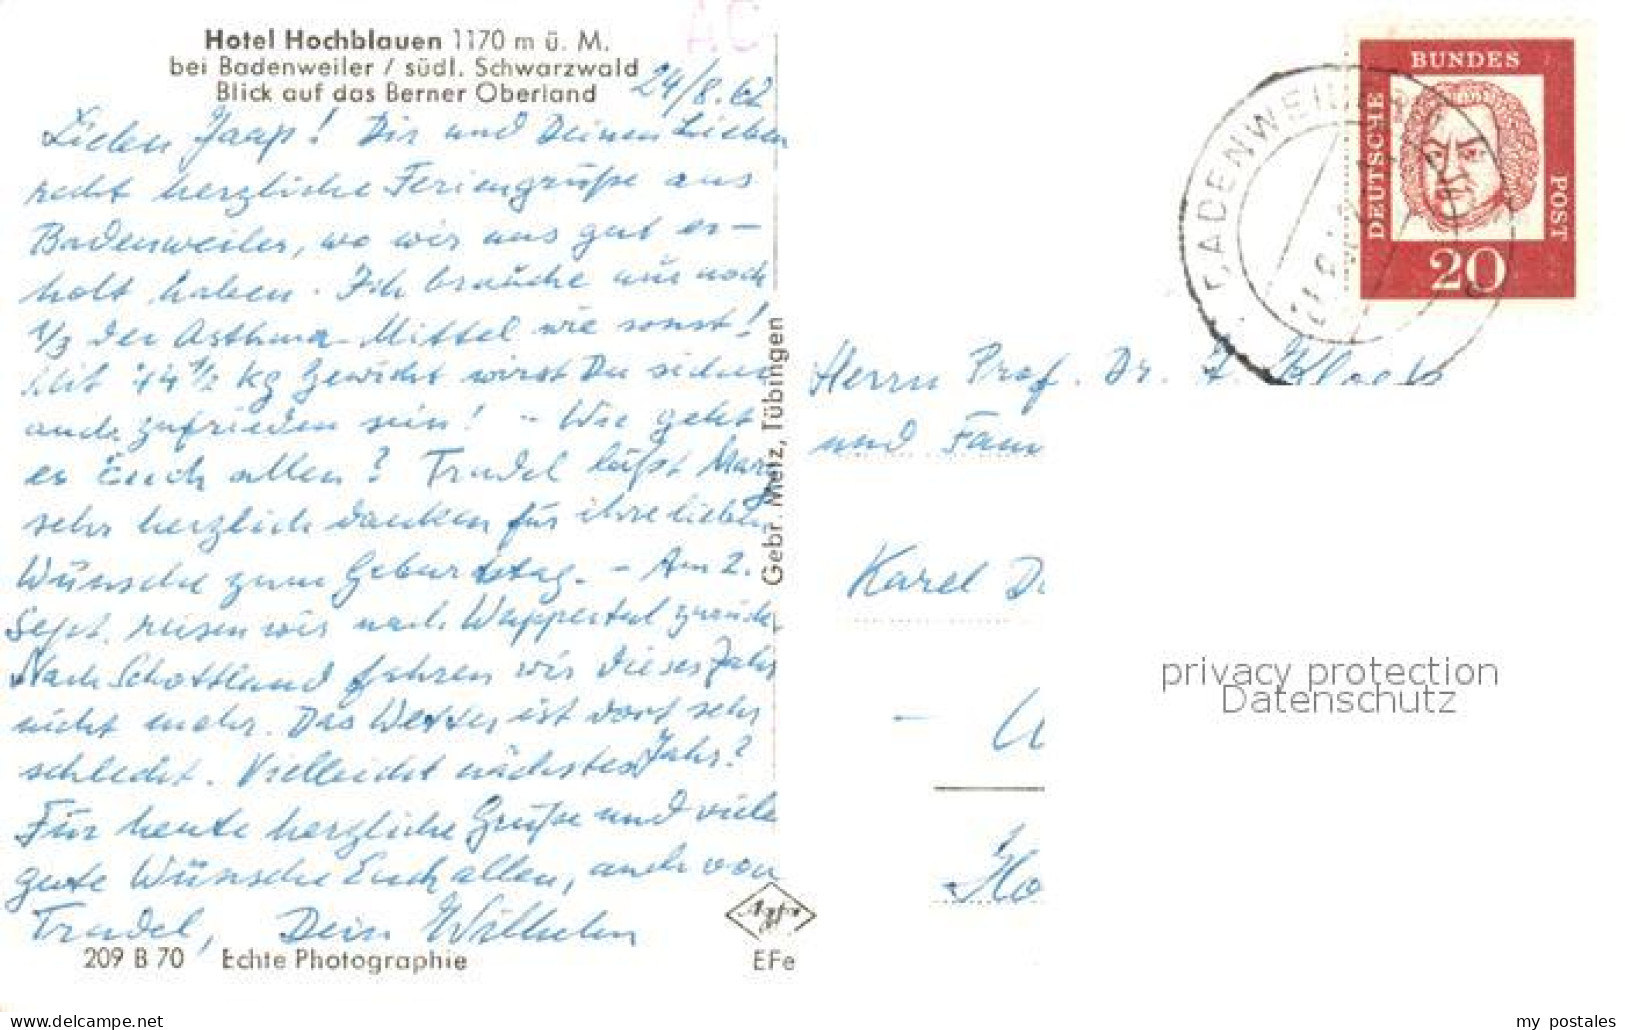 Hotel Hochblauen 1170 m ü. M.
bei Badenweiler / südl. Schwarzwald
Blick auf das Berner Oberland
24/8.62
Lieber Jaap! Dir und Deinen Lieben
recht herzliche Feriengrüße aus
Badenweiler, wo wir uns gut er-
holt haben. Ich brauche nur noch
1/3 der Asthma-Mittel wie sonst!
Mit 74 1/2 kg Gewicht wirst Du sicher
auch zufrieden sein! - Wie geht
es Euch allen? Trudel läßt Marg
sehr herzlich danken für ihre lieben
Wünsche zum Geburtstag. - Am 2.
Sept. reisen wir nach Wuppertal zurück.
Nach Schottland fahren wir dieses Jahr
nicht mehr. Das Wetter ist dort sehr
schlecht. Vielleicht nächstes Jahr?
Für heute herzliche Grüße und viele
gute Wünsche Euch allen, auch von
Trudel, Dein Wilhelm
209 B 70 Echte Photographie
Gebr. Metz, Tübingen
Agfa
EFe
AC
BADENWEILER
DEUTSCHE
BUNDES
POST
20
Herrn Prof. Dr.
und Fam
Karel
Ho
privacy protection
Datenschutz
www.delcampe.net
my_postales